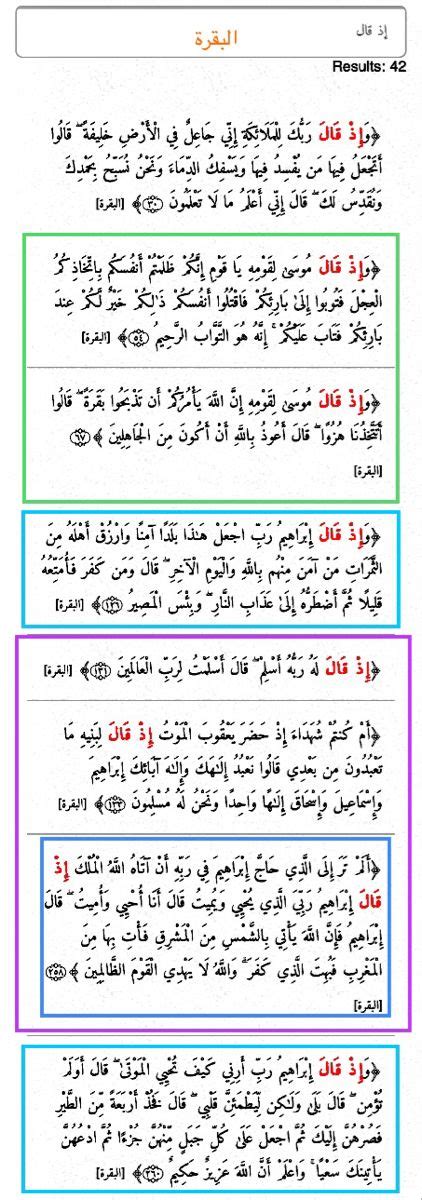 إذ قال
البقرة
Results: 42
﴿وَإِذْ قَالَ رَبُّكَ لِلْمَلَائِكَةِ إِنِّي جَاعِلٌ فِي الْأَرْضِ خَلِيفَةً ۖ قَالُوا
أَتَجْعَلُ فِيهَا مَن يُفْسِدُ فِيهَا وَيَسْفِكُ الدِّمَاءَ وَنَحْنُ نُسَبِّحُ بِحَمْدِكَ
وَنُقَدِّسُ لَكَ ۖ قَالَ إِنِّي أَعْلَمُ مَا لَا تَعْلَمُونَ ﴿٣٠﴾﴾ [البقرة]
﴿وَإِذْ قَالَ مُوسَىٰ لِقَوْمِهِ يَا قَوْمِ إِنَّكُمْ ظَلَمْتُمْ أَنفُسَكُم بِاتِّخَاذِكُمُ
الْعِجْلَ فَتُوبُوا إِلَىٰ بَارِئِكُمْ فَاقْتُلُوا أَنفُسَكُمْ ذَٰلِكُمْ خَيْرٌ لَّكُمْ عِندَ
بَارِئِكُمْ فَتَابَ عَلَيْكُمْ ۚ إِنَّهُ هُوَ التَّوَّابُ الرَّحِيمُ ﴿٥٤﴾﴾ [البقرة]
﴿وَإِذْ قَالَ مُوسَىٰ لِقَوْمِهِ إِنَّ اللَّهَ يَأْمُرُكُمْ أَن تَذْبَحُوا بَقَرَةً ۖ قَالُوا
أَتَتَّخِذُنَا هُزُوًا ۖ قَالَ أَعُوذُ بِاللَّهِ أَنْ أَكُونَ مِنَ الْجَاهِلِينَ ﴿٦٧﴾﴾
[البقرة]
﴿وَإِذْ قَالَ إِبْرَاهِيمُ رَبِّ اجْعَلْ هَٰذَا بَلَدًا آمِنًا وَارْزُقْ أَهْلَهُ مِنَ
الثَّمَرَاتِ مَنْ آمَنَ مِنْهُم بِاللَّهِ وَالْيَوْمِ الْآخِرِ ۖ قَالَ وَمَن كَفَرَ فَأُمَتِّعُهُ
قَلِيلًا ثُمَّ أَضْطَرُّهُ إِلَىٰ عَذَابِ النَّارِ ۖ وَبِئْسَ الْمَصِيرُ ﴿١٢٦﴾﴾ [البقرة]
﴿إِذْ قَالَ لَهُ رَبُّهُ أَسْلِمْ ۖ قَالَ أَسْلَمْتُ لِرَبِّ الْعَالَمِينَ ﴿١٣١﴾﴾ [البقرة]
﴿أَمْ كُنتُمْ شُهَدَاءَ إِذْ حَضَرَ يَعْقُوبَ الْمَوْتُ إِذْ قَالَ لِبَنِيهِ مَا
تَعْبُدُونَ مِن بَعْدِي قَالُوا نَعْبُدُ إِلَٰهَكَ وَإِلَٰهَ آبَائِكَ إِبْرَاهِيمَ
وَإِسْمَاعِيلَ وَإِسْحَاقَ إِلَٰهًا وَاحِدًا وَنَحْنُ لَهُ مُسْلِمُونَ ﴿١٣٣﴾﴾ [البقرة]
﴿أَلَمْ تَرَ إِلَى الَّذِي حَاجَّ إِبْرَاهِيمَ فِي رَبِّهِ أَنْ آتَاهُ اللَّهُ الْمُلْكَ إِذْ
قَالَ إِبْرَاهِيمُ رَبِّيَ الَّذِي يُحْيِي وَيُمِيتُ قَالَ أَنَا أُحْيِي وَأُمِيتُ ۖ قَالَ
إِبْرَاهِيمُ فَإِنَّ اللَّهَ يَأْتِي بِالشَّمْسِ مِنَ الْمَشْرِقِ فَأْتِ بِهَا مِنَ
الْمَغْرِبِ فَبُهِتَ الَّذِي كَفَرَ ۗ وَاللَّهُ لَا يَهْدِي الْقَوْمَ الظَّالِمِينَ ﴿٢٥٨﴾﴾
[البقرة]
﴿وَإِذْ قَالَ إِبْرَاهِيمُ رَبِّ أَرِنِي كَيْفَ تُحْيِي الْمَوْتَىٰ ۖ قَالَ أَوَلَمْ
تُؤْمِن ۖ قَالَ بَلَىٰ وَلَٰكِن لِّيَطْمَئِنَّ قَلْبِي ۖ قَالَ فَخُذْ أَرْبَعَةً مِّنَ الطَّيْرِ
فَصُرْهُنَّ إِلَيْكَ ثُمَّ اجْعَلْ عَلَىٰ كُلِّ جَبَلٍ مِّنْهُنَّ جُزْءًا ثُمَّ ادْعُهُنَّ
يَأْتِينَكَ سَعْيًا ۚ وَاعْلَمْ أَنَّ اللَّهَ عَزِيزٌ حَكِيمٌ ﴿٢٦٠﴾﴾ [البقرة]